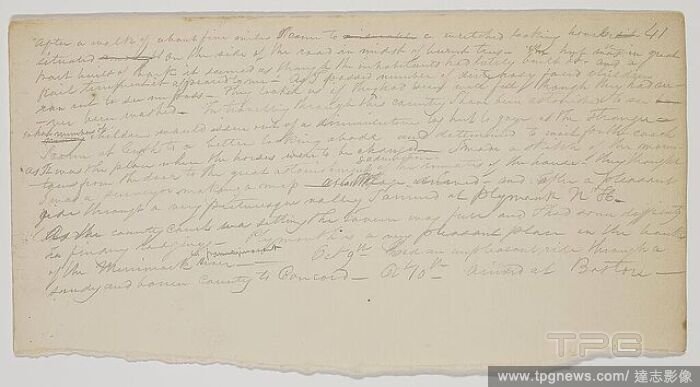 After a walk of about five miles I came to a wretched looking house 41
situated on the side of the road in midst of burnt trees
part built of bark it seemed as though the inhabitants had lately built and a
appeared to me - As I passed number of dirty faced children
ran out to see me pass - They looked as if they had been with they had
ver been washed - In travelling through this country I have been astonished to see
what numbers children would issue out of a hut to gaze at the stranger -
I came at length to a better looking abode and determined to wait for the coach
as it was the place where the horses were to be changed - I made a sketch of the moun-
tains from the door to the great astonishment of the inmates of the house - they thought
I was a surveyor making a map - arrived - and after a pleasant
ride through a very picturesque valley I arrived at Plymouth N H -
As the county court was sitting the tavern was full and I had some difficulty
in finding lodgings - Plymouth is a very pleasant place on the bank
of the Merrimack River - Oct 9th Had an unpleasant ride through a
sandy and barren country to Concord - Oct 10th Arrived at Boston -
TPG
www.tpgnews.com / 達志影像